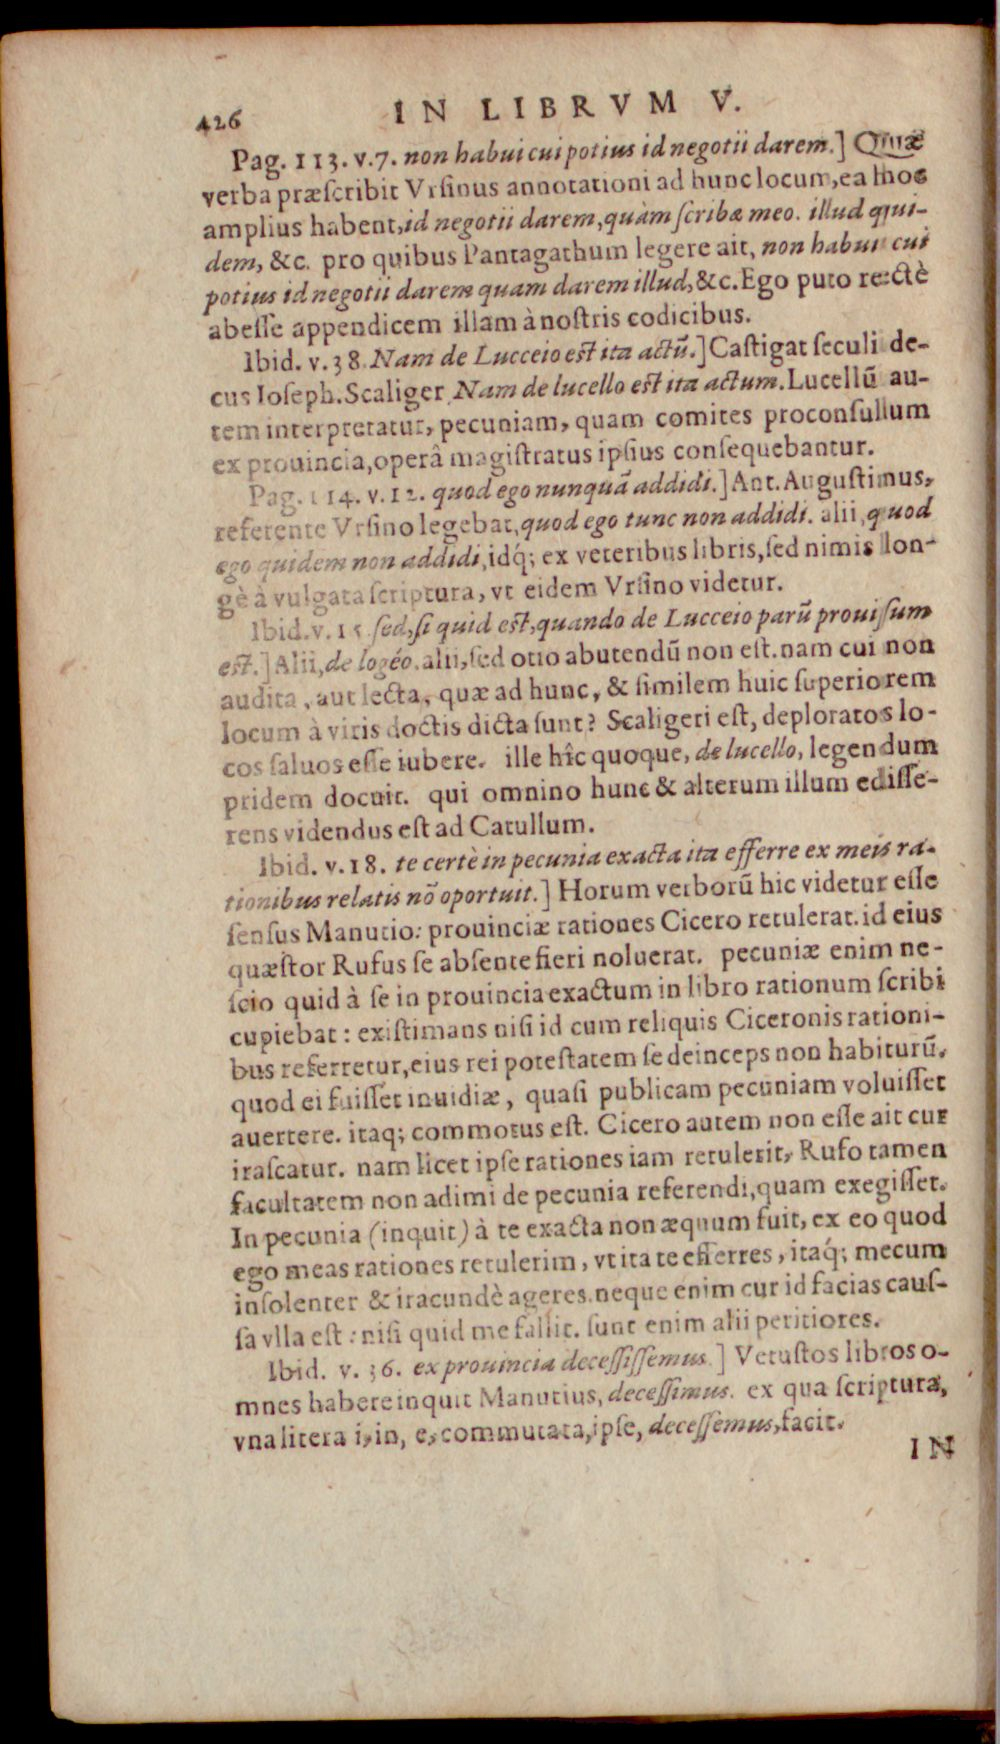 426 IN LIBRVM V.
Pag. 113. v.7. non habui cui potius id negotii darem.] Quæ
verba præſcribit Vrſinus annotationi ad hunc locum, ea hoc
amplius habent, id negotii darem, quàm ſcribæ meo. illud qui-
dem, &c. pro quibus Pantagathum legere ait, non habui cui
potius id negotii darem quam darem illud, &c. Ego puto rectè
abeſſe appendicem illam à noſtris codicibus.
Ibid. v. 38. Nam de Lucceio eſt ita actũ.] Caſtigat ſeculi de-
cus Ioſeph. Scaliger Nam de lucello eſt ita actum. Lucellũ au-
tem interpretatur, pecuniam, quam comites proconſullum
ex prouincia, operâ magiſtratus ipſius conſequebantur.
Pag. 114. v. 12. quod ego nunquã addidi.] Ant. Auguſtinus,
referente Vrſino legebat, quod ego tunc non addidi. alii, quod
ego quidem non addidi, idq́; ex veteribus libris, ſed nimis lon-
gè à vulgata ſcriptura, vt eidem Vrſino videtur.
Ibid. v. 15. ſed, ſi quid eſt, quando de Lucceio parũ prouiſum
eſt.] Alii, de logéo. alii, ſed otio abutendũ non eſt. nam cui non
audita, aut lecta, quæ ad hunc, & ſimilem huic ſuperiorem
locum à viris doctis dicta ſunt? Scaligeri eſt, deploratos lo-
cos ſaluos eſſe iubere. ille hîc quoque, de lucello, legendum
pridem docuit. qui omnino hunc & alterum illum ediſſe-
rens videndus eſt ad Catullum.
Ibid. v. 18. te certè in pecunia exacta ita efferre ex meis ra-
tionibus relatis nõ oportuit.] Horum verborũ hic videtur eſſe
ſenſus Manutio: prouinciæ rationes Cicero retulerat. id eius
quæſtor Rufus ſe abſente fieri noluerat. pecuniæ enim ne-
ſcio quid à ſe in prouincia exactum in libro rationum ſcribi
cupiebat: exiſtimans niſi id cum reliquis Ciceronis rationi-
bus referretur, eius rei poteſtatem ſe deinceps non habiturũ.
quod ei fuiſſet inuidiæ, quaſi publicam pecuniam voluiſſet
auertere. itaq; commotus eſt. Cicero autem non eſſe ait cur
iraſcatur. nam licet ipſe rationes iam retulerit, Rufo tamen
facultatem non adimi de pecunia referendi, quam exegiſſet.
In pecunia (inquit) à te exacta non æquum fuit, ex eo quod
ego meas rationes retulerim, vt ita te efferres, itaq́; mecum
inſolenter & iracundè ageres. neque enim cur id facias cauſ-
ſa vlla eſt: niſi quid me fallit. ſunt enim alii peritiores.
Ibid. v. 36. ex prouincia deceſſiſſemus.] Vetuſtos libros o-
mnes habere inquit Manutius, deceſſimus. ex qua ſcriptura,
vna litera i, in, e, commutata, ipſe, deceſſemus, facit.
IN